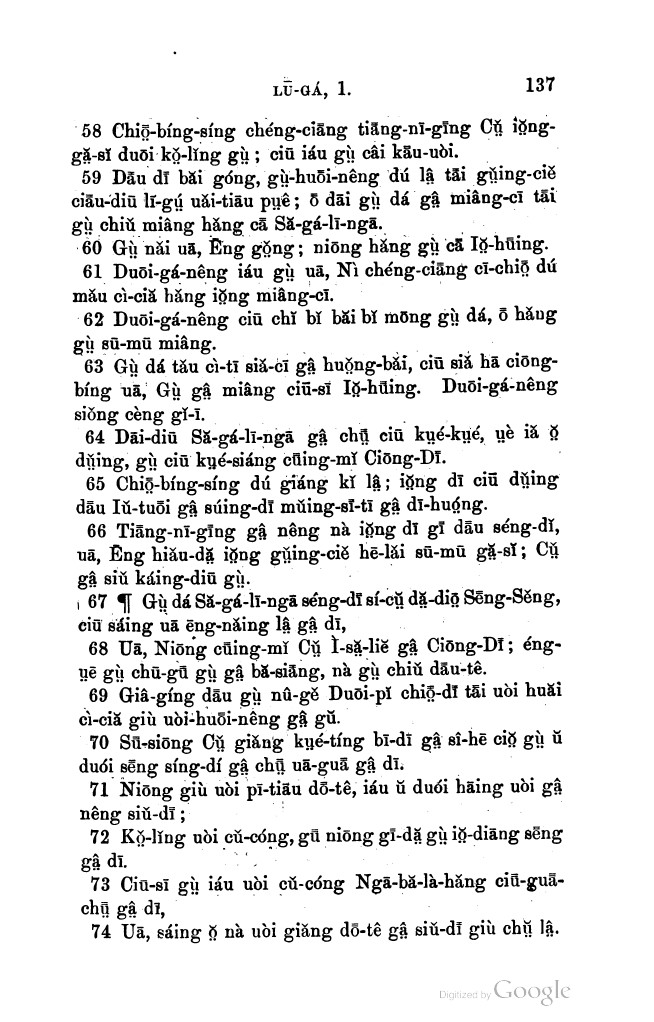 LŪ-GÁ, 1. 137
58 Chiō̤-bíng-síng chéng-ciāng tiāng-nī-gīng Cṳ̆ iŏ̤ng-
gă̤-sĭ duōi kŏ̤-lĭng gṳ̀ ; ciū iáu gṳ̀ câi kāu-uòi.
59 Dāu dī băi góng, gṳ̀-huōi-nêng dú lâ̤ tāi gṳ̆ing-ciĕ
ciāu-diū lī-gṳ́ uăi-tiāu pṳê ; ō dāi gṳ̀ dá gâ̤ miâng-cī tāi
gṳ̀ chiŭ miâng hăng cā Să-gá-lī-ngā.
60 Gṳ̀ năi uā, Ēng gŏ̤ng ; niōng hăng gṳ̀ cā Iŏ̤-hūing.
61 Duōi-gá-nêng iáu gṳ̀ uā, Nì chéng-ciāng cī-chiō̤ dú
mău cì-ciă hăng iŏ̤ng miâng-cī.
62 Duōi-gá-nêng ciū chĭ bĭ băi bĭ mōng gṳ̀ dá, ō hăug
gṳ̀ sū-mū miâng.
63 Gṳ̀ dá tău cì-tī siă-cī gâ̤ huŏ̤ng-băi, ciū siă hā ciōng-
bíng uā, Gṳ̀ gâ̤ miâng ciū-sī Iŏ̤-hūing. Duōi-gá-nêng
siŏng cèng gĭ-ī.
64 Dāi-diū Să-gá-lī-ngā gâ̤ chṳ̄ ciū kṳé-kṳé, ṳè iă ŏ̤
dṳ̆ing, gṳ̀ ciū kṳé-siáng cūing-mĭ Ciōng-Dī.
65 Chiō̤-bíng-síng dú giáng kĭ lâ̤ ; iŏ̤ng dī ciū dṳ̆ing
dāu Iŭ-tuōi gâ̤ súing-dī mŭing-sī-tī gâ̤ dī-huó̤ng.
66 Tiāng-nī-gīng gâ̤ nêng nà iŏ̤ng dī gī dāu séng-dĭ,
uā, Ēng hiău-dă̤ iŏ̤ng gṳ̆ing-ciĕ hē-lăi sū-mū gă̤-sĭ ; Cṳ̆
gâ̤ siŭ káing-diū gṳ̀.
67 ¶ Gṳ̀ dá Să-gá-lī-ngā séng-dī sí-cṳ̆ dă̤-diō̤ Sēng-Sĕng,
ciū sáing uā ēng-năing lâ̤ gâ̤ dī,
68 Uā, Niōng cūing-mĭ Cṳ̆ Ì-să̤-liĕ gâ̤ Ciōng-Dī ; éng-
ṳē gṳ̀ chū-gū gṳ̀ gâ̤ bă-siāng, nà gṳ̀ chiŭ dāu-tê.
69 Giâ-gíng dāu gṳ̀ nû-gĕ Duōi-pĭ chiō̤-dī tāi uòi huăi
cì-ciă giù uòi-huōi-nêng gâ̤ gŭ.
70 Sū-siōng Cṳ̆ giăng kṳé-tíng bī-dì gâ̤ sî-hē ciŏ̤ gṳ̀ ŭ
duói sēng síng-dí gâ̤ chṳ̄ uā-guā gâ̤ dī.
71 Niōng giù uòi pī-tiāu dō-tê, iáu ŭ duói hāing uòi gâ̤
nêng siŭ-dī ;
72 Kŏ̤-lĭng uòi cŭ-cóng, gū niōng gī-dă̤ gṳ̀ iŏ̤-diāng sēng
gâ̤ dī.
73 Ciū-sī gṳ̀ iáu uòi cŭ-cóng Ngā-bă-là-hăng ciū-guā-
chṳ̄ gâ̤ dī,
74 Uā, sáing ŏ̤ nà uòi giăng dō-tê gâ̤ siŭ-dī giù chṳ̆ lâ̤.
Digitized by Google